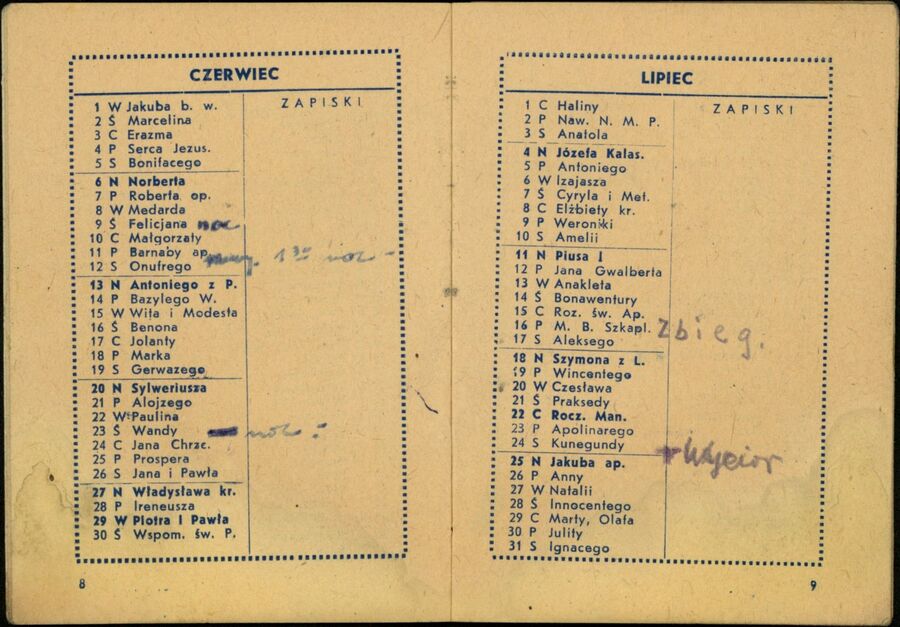 CZERWIEC
ZAPISKI
1 W Jakuba b. w.
2 Ś Marcelina
3 C Erazma
4 P Serca Jezus.
5 S Bonifacego
6 N Norberta
7 P Roberta op.
8 W Medarda
9 Ś Felicjana noc
10 C Małgorzaty
11 P Barnaby ap.
12 S Onufrego 13⁰⁰ noc -
13 N Antoniego z P.
14 P Bazylego W.
15 W Wita i Modesta
16 Ś Benona
17 C Jolanty
18 P Marka
19 S Gerwazego
20 N Sylweriusza
21 P Alojzego
22 W Paulina
23 Ś Wandy noc
24 C Jana Chrzc.
25 P Prospera
26 S Jana i Pawła
27 N Władysława kr.
28 P Ireneusza
29 W Piotra i Pawła
30 Ś Wspom. św. P.
8
LIPIEC
ZAPISKI
1 C Haliny
2 P Naw. N. M. P.
3 S Anatola
4 N Józefa Kalas.
5 P Antoniego
6 W Izajasza
7 Ś Cyryla i Met.
8 C Elżbiety kr.
9 P Weroniki
10 S Amelii
11 N Piusa I
12 P Jana Gwalberta
13 W Anakleta
14 Ś Bonawentury
15 C Roz. św. Ap.
16 P M. B. Szkapl. Zbieg.
17 S Aleksego
18 N Szymona z L.
19 P Wincentego
20 W Czesława
21 Ś Praksedy
22 C Rocz. Man.
23 P Apolinarego
24 S Kunegundy
25 N Jakuba ap.
26 P Anny
27 W Natalii
28 Ś Innocentego
29 C Marty, Olafa
30 P Julity
31 S Ignacego
9